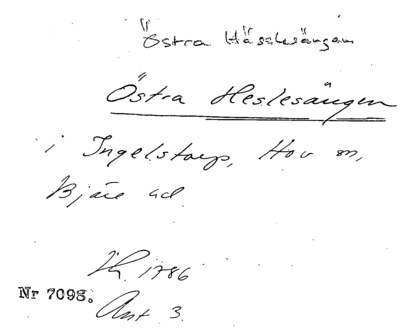 Östra Hässlesängen
Östra Heslesängen
i Ingelstorp, Hov sn,
Bjäre hd.
Lh. 1786
Nr 7098.
Ant 3.